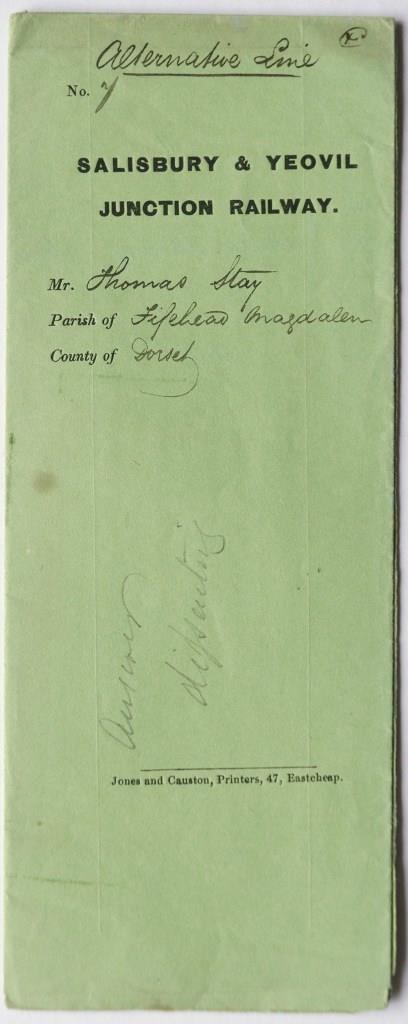 Alternative Line
No. 7
SALISBURY & YEOVIL
JUNCTION RAILWAY.
Mr. Thomas Stay
Parish of Fifehead Magdalen
County of Dorset
Answer
dissenting
Jones and Causton, Printers, 47, Eastcheap.